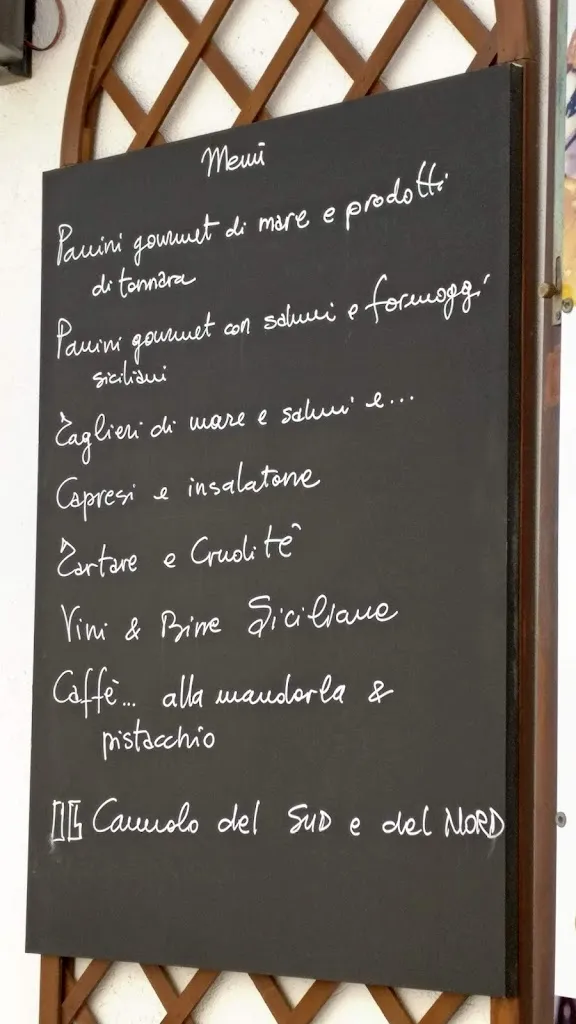 Menù
Panini gourmet di mare e prodotti
di tonnara
Panini gourmet con salumi e formaggi
siciliani
Taglieri di mare e salumi e...
Capresi e insalatone
Tartare e Cruditè
Vini & Birre Siciliane
Caffè... alla mandorla &
pistacchio
IL Cannolo del SUD e del NORD